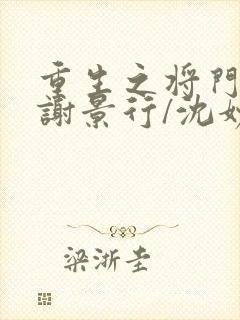 重生之将門
謝景行/沈妙
梁浙圭